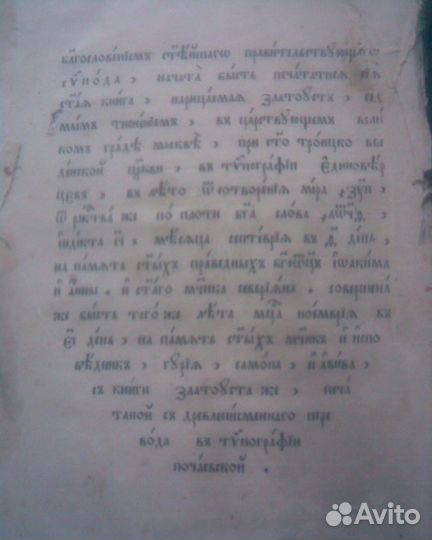 бл҃гословенїемъ ст҃ѣйшагѡ правительствующагѡ
сѵнода, начата̀ бысть печататися сїѧ̀
ст҃а́ѧ книга, нарицаемая златоустъ,
мымъ тисненїемъ, въ царствующемъ вели
комъ градѣ москвѣ, при ст҃о троицко вве
денской цр҃кви, въ тѵпографїи единовѣр
цевъ, въ лѣто ѿ сотворенїя мїра
ѿ рж҃тва же по плоти бг҃а слова
їндїкта мѣсяца септеврїя въ день,
на память ст҃ыхъ праведныхъ бг҃оѿц҃ъ їѡакїма
и҆ анны. и҆ ст҃а́го мч҃нка северїана. совершена
же бысть того же лѣта мц҃а ноемврїа въ
є҃і день, на память ст҃ыхъ мч҃нкъ и҆ испо
вѣдникъ, гурїя, самона, и҆ авива,
съ книги златоуста же, печа
таной съ древлеписменнаго пере
вода въ тѵпографїи
почаевской.
Avito